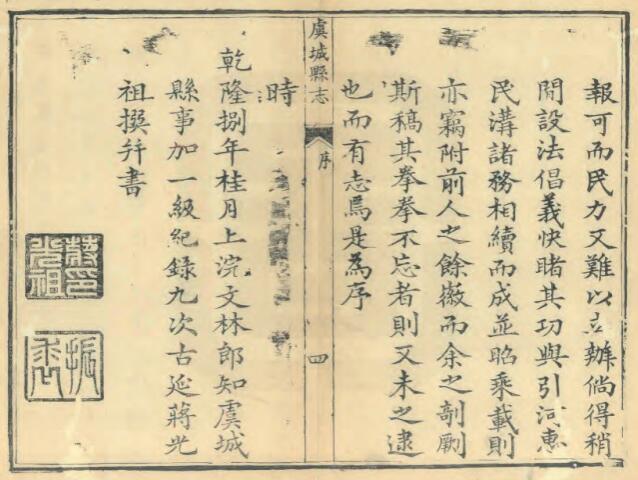 報可而民力又難以立辦倘得稍
閒設法倡義快睹其功與引河惠
民溝諸務相續而成並昭乘載則
亦竊附前人之餘徽而余之剞劂
斯稿其拳拳不忘者則又未之逮
也而有志焉是為序
虞城縣志
序
四
時
乾隆捌年桂月上浣文林郎知虞城
縣事加一級紀錄九次古延蔣光
祖撰并書
蔣光祖印
振裘